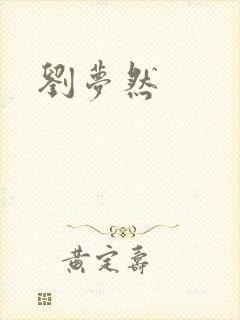 劉夢然
黃定壽